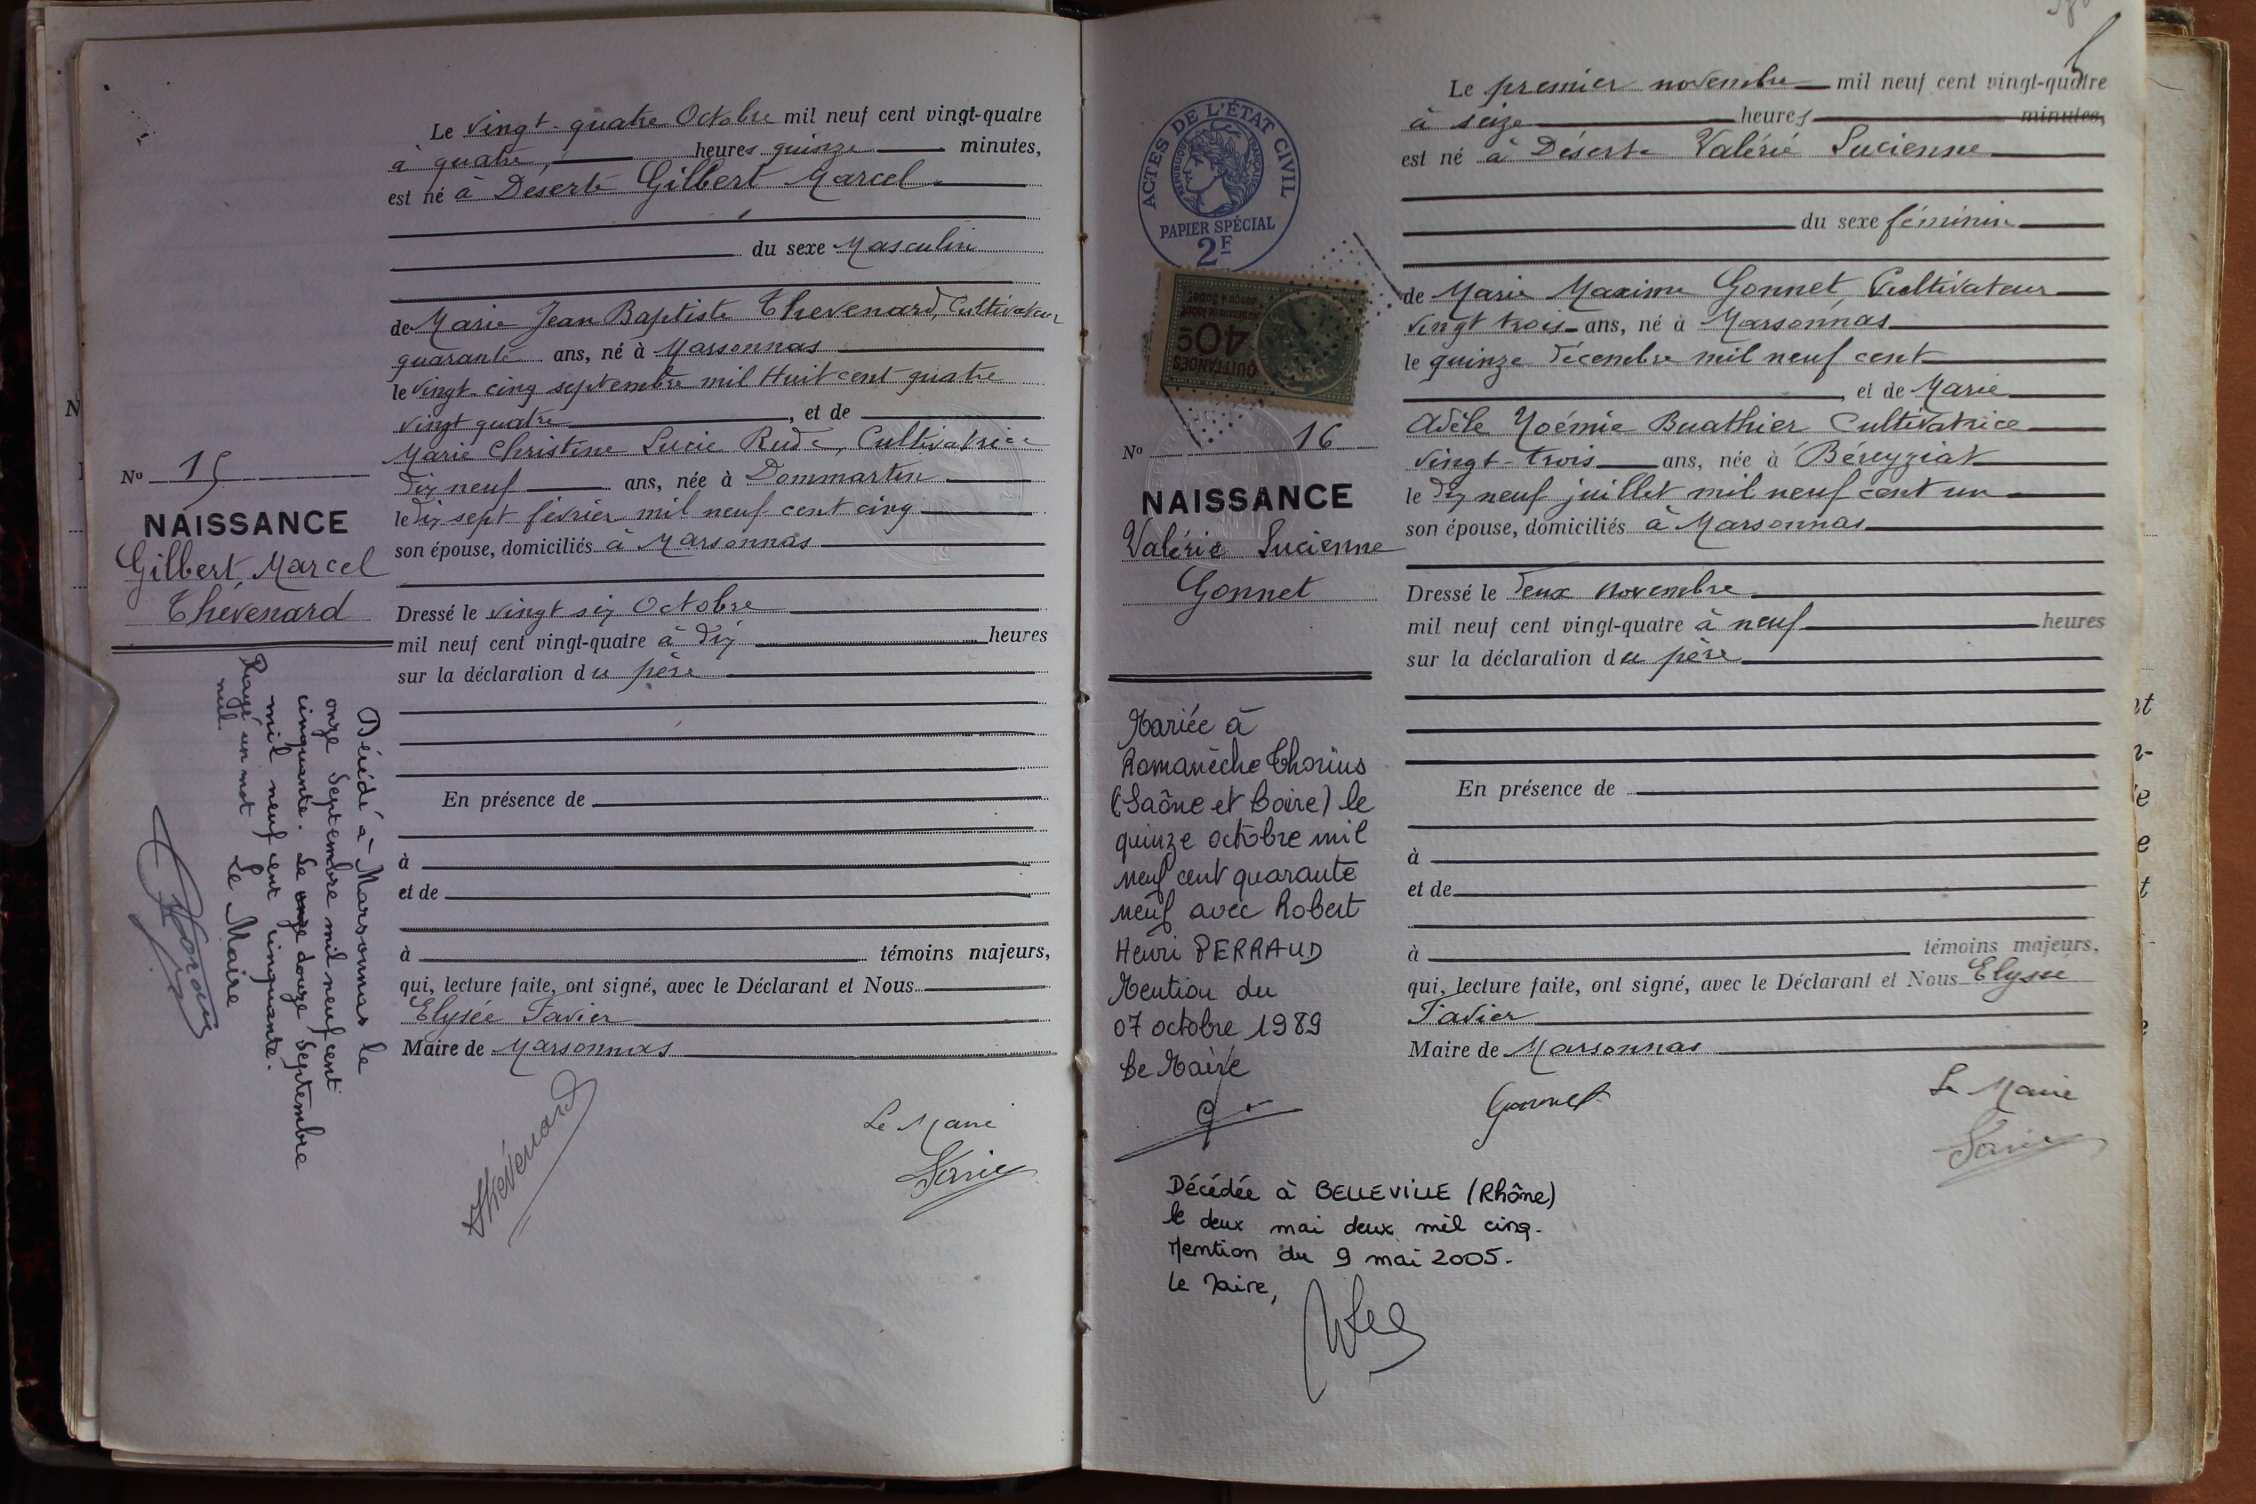 Le vingt-quatre Octobre mil neuf cent vingt-quatre
à quatre, heures quinze minutes,
est né à Déserte Gilbert Marcel
du sexe Masculin
de Marie Jean Baptiste Thevenard, Cultivateur
quarante ans, né à Marsonnas
le vingt-cinq septembre mil Huit cent quatre
vingt quatre, et de
Marie Christine Lucie Rude, Cultivatrice
dix neuf ans, née à Dommartin
le dix sept février mil neuf cent cinq
son épouse, domiciliés à Marsonnas
Dressé le vingt six Octobre
mil neuf cent vingt-quatre à dix heures
sur la déclaration du père
En présence de
à
et de
à témoins majeurs,
qui, lecture faite, ont signé, avec le Déclarant et Nous
Elysée Favier
Maire de Marsonnas
Thévenard
Le Maire
Favier
No 15
NAISSANCE
Gilbert Marcel
Thévenard
Décédé à Marsonnas le
onze Septembre mil neuf cent
cinquante. Le onze douze Septembre
mil neuf cent cinquante.
Rayé un mot Le Maire
nul
ACTES DE L'ÉTAT CIVIL
RÉPUBLIQUE FRANÇAISE
PAPIER SPÉCIAL
2F
QUITTANCES
40c
No 16
NAISSANCE
Valérie Lucienne
Gonnet
Mariée à
Romanèche Thorins
(Saône et Loire) le
quinze octobre mil
neuf cent quarante
neuf avec Robert
Henri PERRAUD
Mention du
07 octobre 1989
Le Maire
Décédée à BELLEVILLE (Rhône)
le deux mai deux mil cinq.
Mention du 9 mai 2005.
Le Maire,
Le premier novembre mil neuf cent vingt-quatre
à seize heures minutes,
est né à Déserte Valérie Lucienne
du sexe féminin
de Marie Maxime Gonnet, Cultivateur
vingt trois ans, né à Marsonnas
le quinze décembre mil neuf cent
, et de Marie
Adèle Noémie Buathier Cultivatrice
vingt-trois ans, née à Béréyziat
le dix neuf juillet mil neuf cent un
son épouse, domiciliés à Marsonnas
Dressé le deux novembre
mil neuf cent vingt-quatre à neuf heures
sur la déclaration du père
En présence de
à
et de
à témoins majeurs,
qui, lecture faite, ont signé, avec le Déclarant et Nous Elysée
Favier
Maire de Marsonnas
Gonnet
Le Maire
Favier